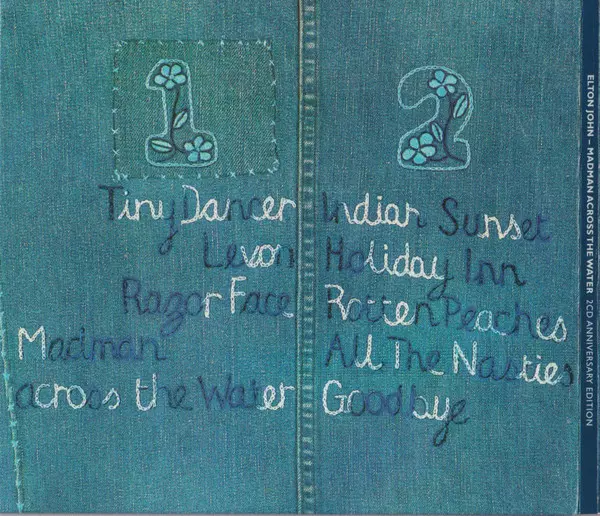 1
Tiny Dancer
Levon
Razor Face
Madman
across the Water
2
Indian Sunset
Holiday Inn
Rotten Peaches
All The Nasties
Goodbye
ELTON JOHN – MADMAN ACROSS THE WATER 2CD ANNIVERSARY EDITION